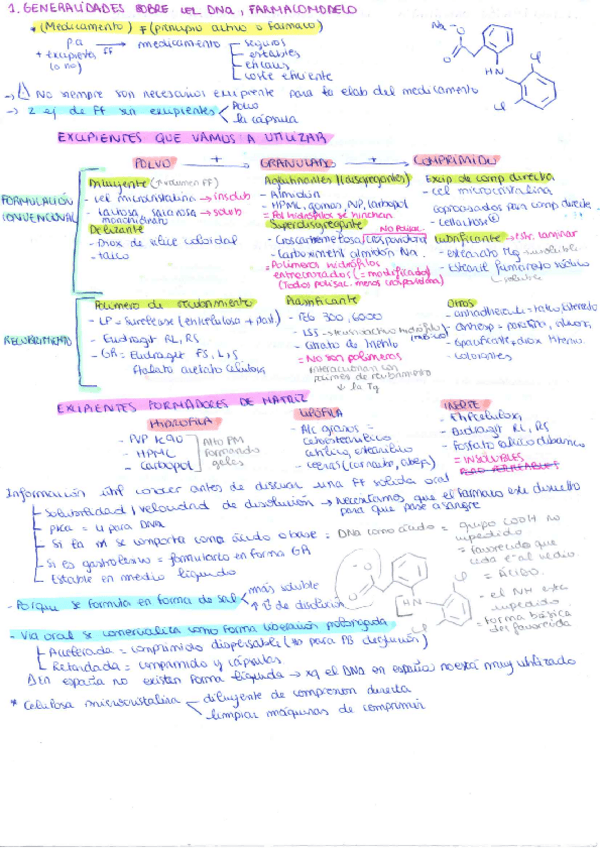 1. GENERALIDADES SOBRE EL DNA, FARMACOMODELO
* (Medicamento) ≠ (principio activo o Fármaco)
pa + excipientes (o no) → FF medicamento
seguros
estables
eficaces
coste eficiente
Na
O
O
HN
Cl
Cl
→ ⚠ No siempre son necesarios excipiente para la elab del medicamento
→ 2 ej de FF sin excipientes
Polvo
la cápsula
EXCIPIENTES QUE VAMOS A UTILIZAR
POLVO + GRANULADO + COMPRIMIDO
FORMULACIÓN CONVENCIONAL
Diluyente (↑ volumen FF)
- cel microcristalina → insolub
- lactosa monohidrato, sacarosa → solub
Deslizante
- Diox de sílice coloidal
- talco
Aglutinantes (disgregantes)
- Almidón
- HPMC, gomas, NP, carbopol
= Pol hidrófilos se hinchan
Superdisgregante
- Croscarmelosa/crospovidona
- Carboximetil almidón Na.
= Polímeros hidrófilos
entrecruzados (= modificados)
(Todos polisac. menos crospovidona)
Excip de comp directa
- cel microcristalina
coprocesados para comp directa
- cellactose®
Lubrificante → Estr. laminar
- estearato Mg
- estearil fumarato sódico
RECUBRIMIENTO
Polímero de recubrimiento
- LP = surelease (etilcelulosa + plast)
- Eudragit RL, RS
- GR = Eudragit FS, L, S
Ftalato acetato celulosa
Plastificante
- PEG 300, 6000
- Citrato de trietilo
= No son polímeros
interaccionan con
polímeros de recubrimiento
↓ la Tg
Otros
- colorantes
EXCIPIENTES FORMADORES DE MATRIZ
HIDRÓFILA
- PVP K90
- HPMC
- Carbopol
Alto PM
formando
geles
LIPÓFILA
- Alc grasos =
cetoestearílico
cetílico, estearílico
- ceras (carnauba, abeja)
INERTE
- Etilcelulosa
- Eudragit RL, RS
- fosfato cálcico dibásico
= INSOLUBLES
PERO PERMEABLES
Información útil conocer antes de diseñar una FF sólida oral
Solubilidad / velocidad de disolución → Necesitamos que el fármaco esté disuelto para que pase a sangre
pKa = 4 para DNa
Si fa m se comporta como ácido o base = DNa como ácido = grupo COOH no impedido
= favorecido que ceda e- al medio.
= ÁCIDO.
- el NH está impedido
= forma básica des favorecida
Si es gastrolesivo = formularlo en forma GR
Estable en medio líquido
- Porque se formula en forma de sal
más soluble
↑ v de disolución
HN
Cl
- Vía oral se comercializa como forma liberación prolongada
Acelerada = comprimidos dispersables (50 para PB deglución)
Retardada = comprimido y cápsulas
⚠ En españa no existen forma líquida → xq el DNA en españa no está muy utilizado
* Celulosa microcristalina
diluyente de compresión directa
limpiar máquinas de comprimir